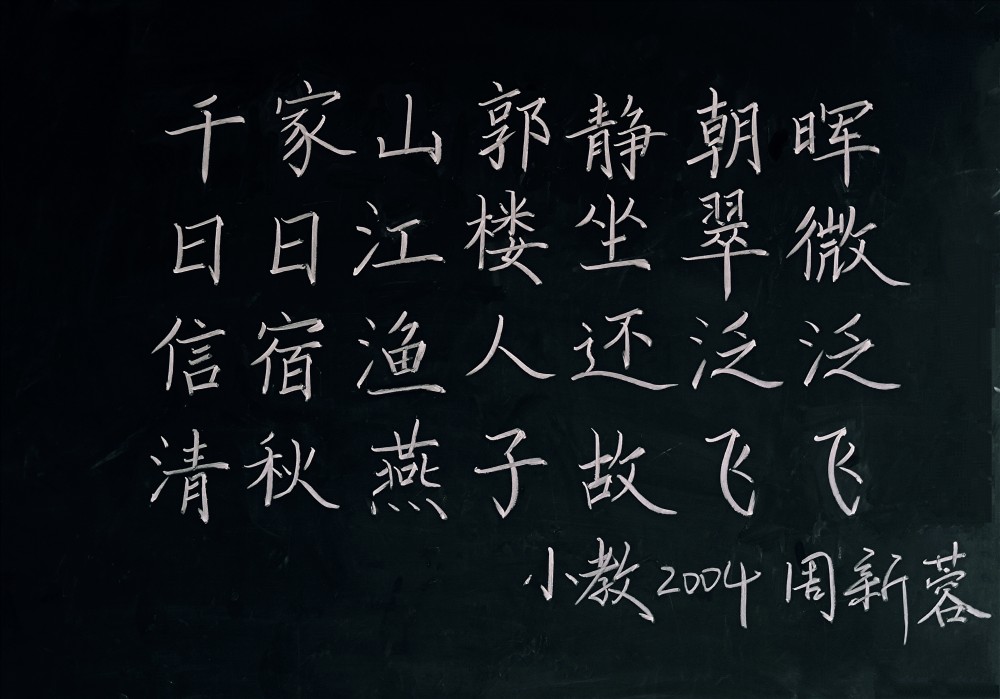 千家山郭静朝晖
日日江楼坐翠微
信宿渔人还泛泛
清秋燕子故飞飞
小教2004 周新蓉